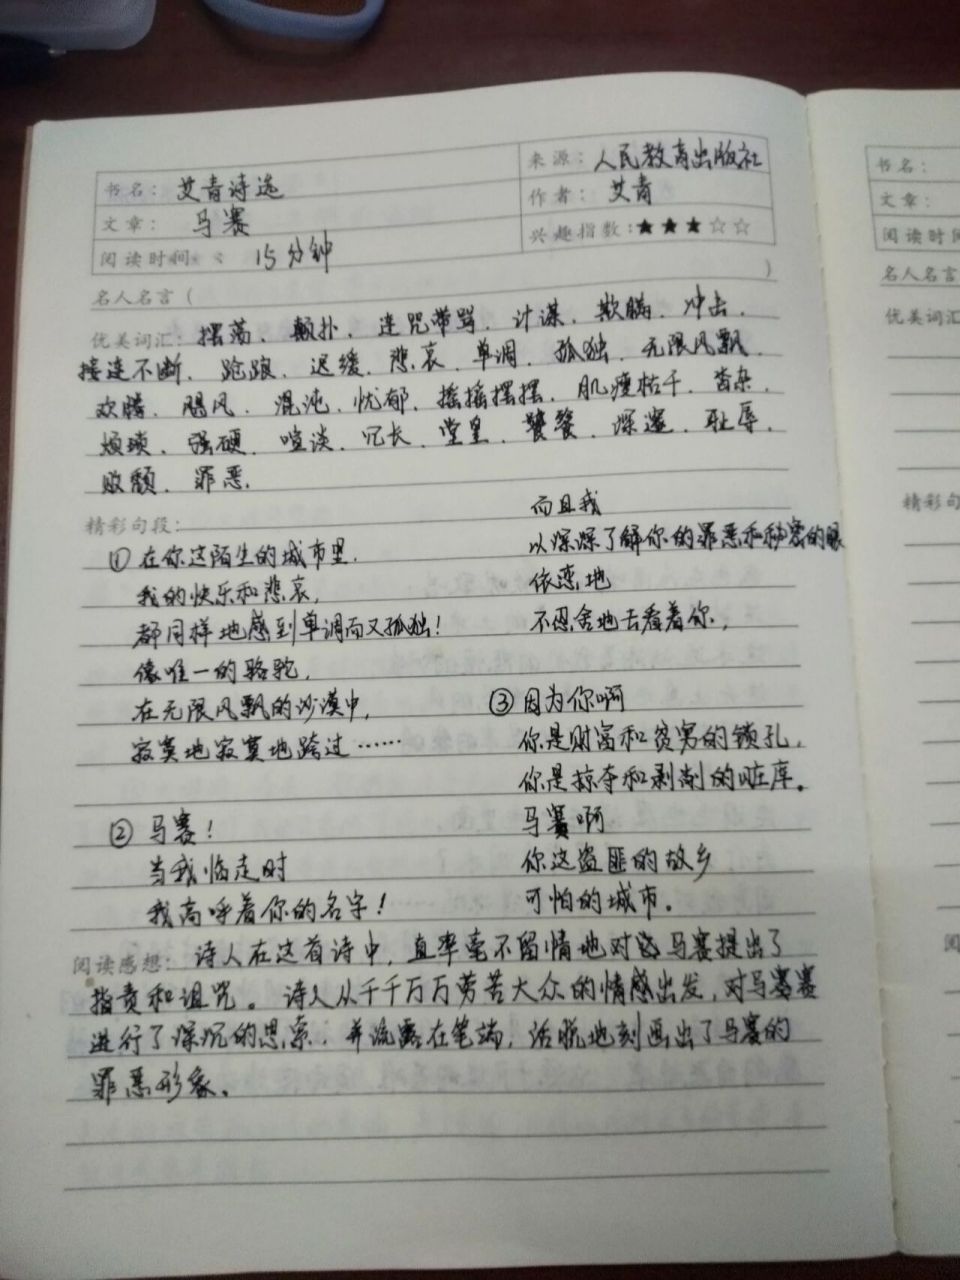 书名： 艾青诗选
来源： 人民教育出版社
文章： 马赛
作者： 艾青
阅读时间： 15分钟
兴趣指数：★★★☆☆
名人名言（ ）
优美词汇：摆荡、颠扑、连咒带骂、计谋、欺瞒、冲击、
接连不断、跄踉、迟缓、悲哀、单调、孤独、无限风飘、
欢腾、飓风、混沌、忧郁、摇摇摆摆、肌瘦枯干、沓杂、
烦琐、强硬、喧谈、冗长、堂皇、饕餮、深邃、耻辱、
败颓、罪恶、
精彩句段：
①在你这陌生的城市里、
我的快乐和悲哀，
都同样地感到单调而又孤独！
像唯一的骆驼，
在无限风飘的沙漠中，
寂寞地寂寞地跨过……
②马赛！
当我临走时
我高呼着你的名字！
而且我
以深深了解你的罪恶和秘密的眼
依恋地
不忍舍地去看着你，
③因为你啊
你是财富和贫穷的锁孔，
你是掠夺和剥削的赃库。
马赛啊
你这盗匪的故乡
可怕的城市。
阅读感想：诗人在这首诗中，直率毫不留情地对马赛提出了
指责和诅咒。诗人从千千万万劳苦大众的情感出发，对马赛赛
进行了深沉的思索，并流露在笔端，活脱地刻画出了马赛的
罪恶形象。
书名：
文章：
阅读时间
名人名言
优美词汇
精彩句
阅